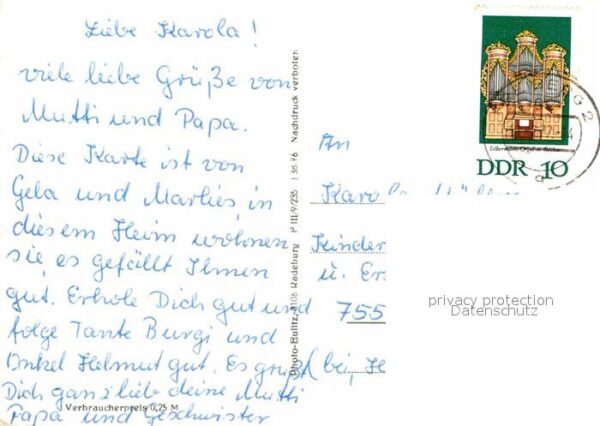 Liebe Karola!
viele liebe Grüße von
Mutti und Papa.
Diese Karte ist von
Gela und Marlies, in
diesem Heim wohnen
sie es gefällt Ihnen
gut. Erhole Dich gut und
folge Tante Burgi und
Onkel Helmut gut. Es grüßt
Dich ganz lieb deine Mutti
Papa und Geschwister
Verbraucherpreis 0,25 M
Photo-Bulitz, 8106 Radeburg P III/9/235 1 36 76 Nachdruck verboten
DDR 10
An
Kinder
u. Er
755
bei, H
privacy protection
Datenschutz